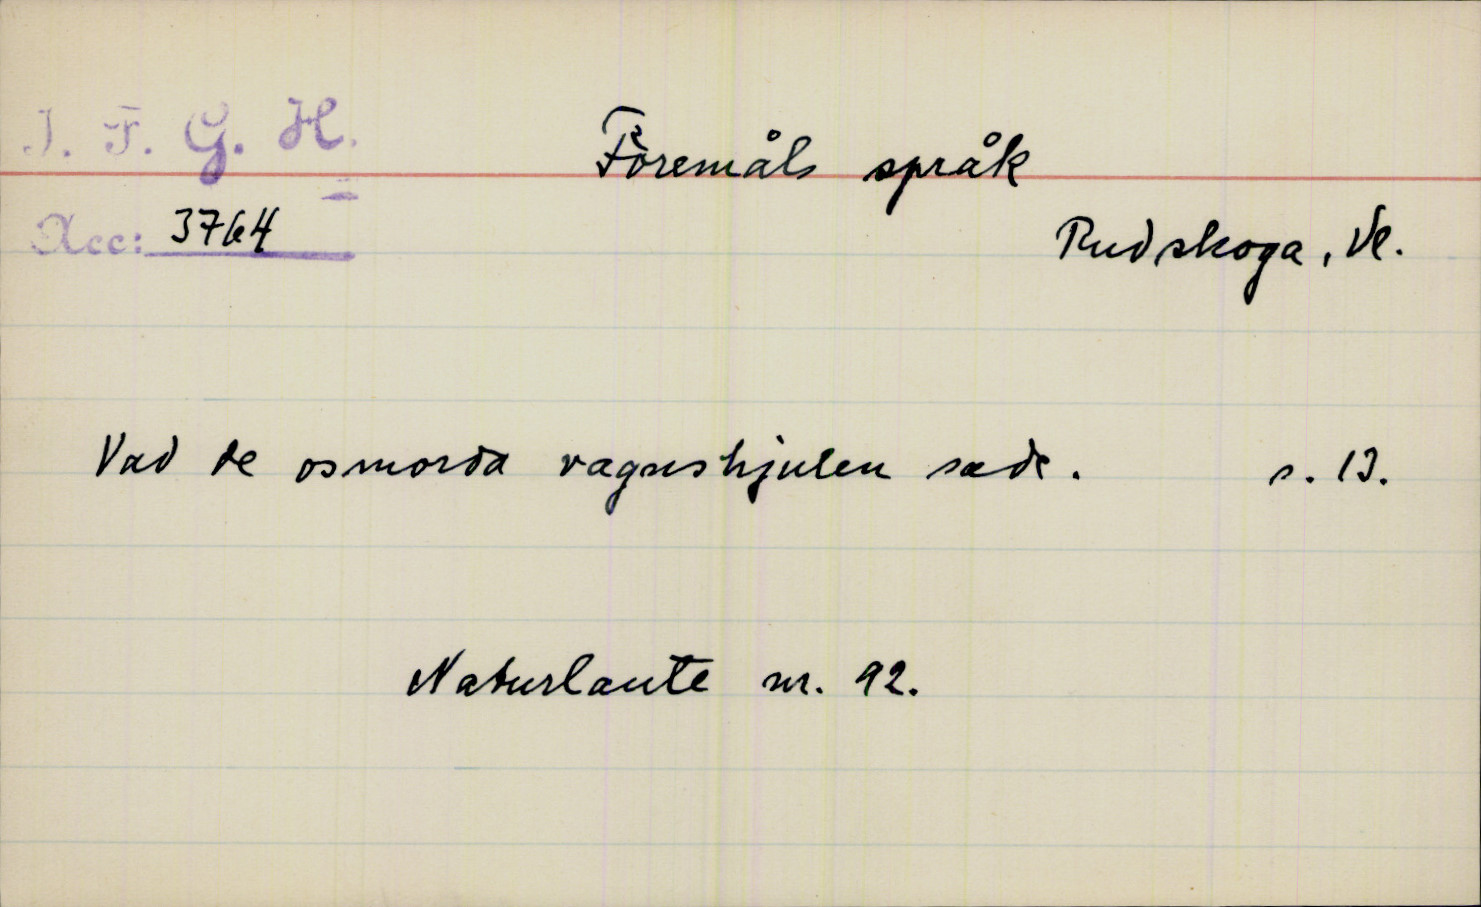 I. F. G. H.
Föremåls språk
Acc: 3764
Rudskoga, Vl.
Vad de osmorda vagnshjulen sade. s. 13.
Naturlaute nr. 92.